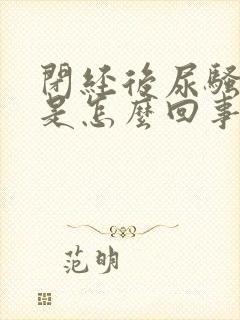 閉經後尿騷
是怎麼回事
范明